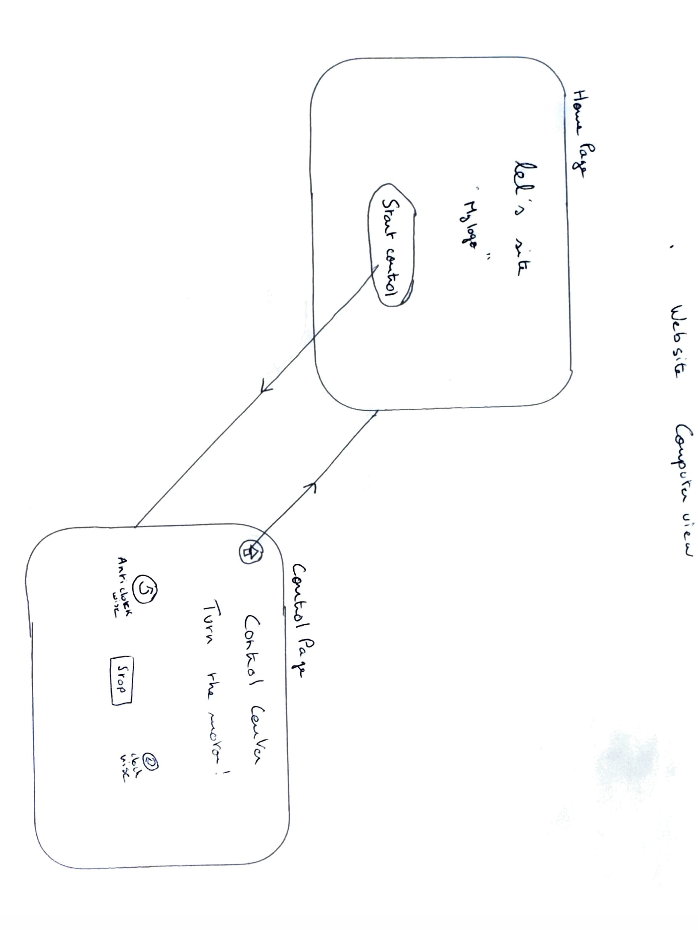 Website Computer view
Home Page
lel's site
"My logo"
Start control
Control Page
Control Center
Turn the motor!
Anti clock
wise
Stop
clock
wise